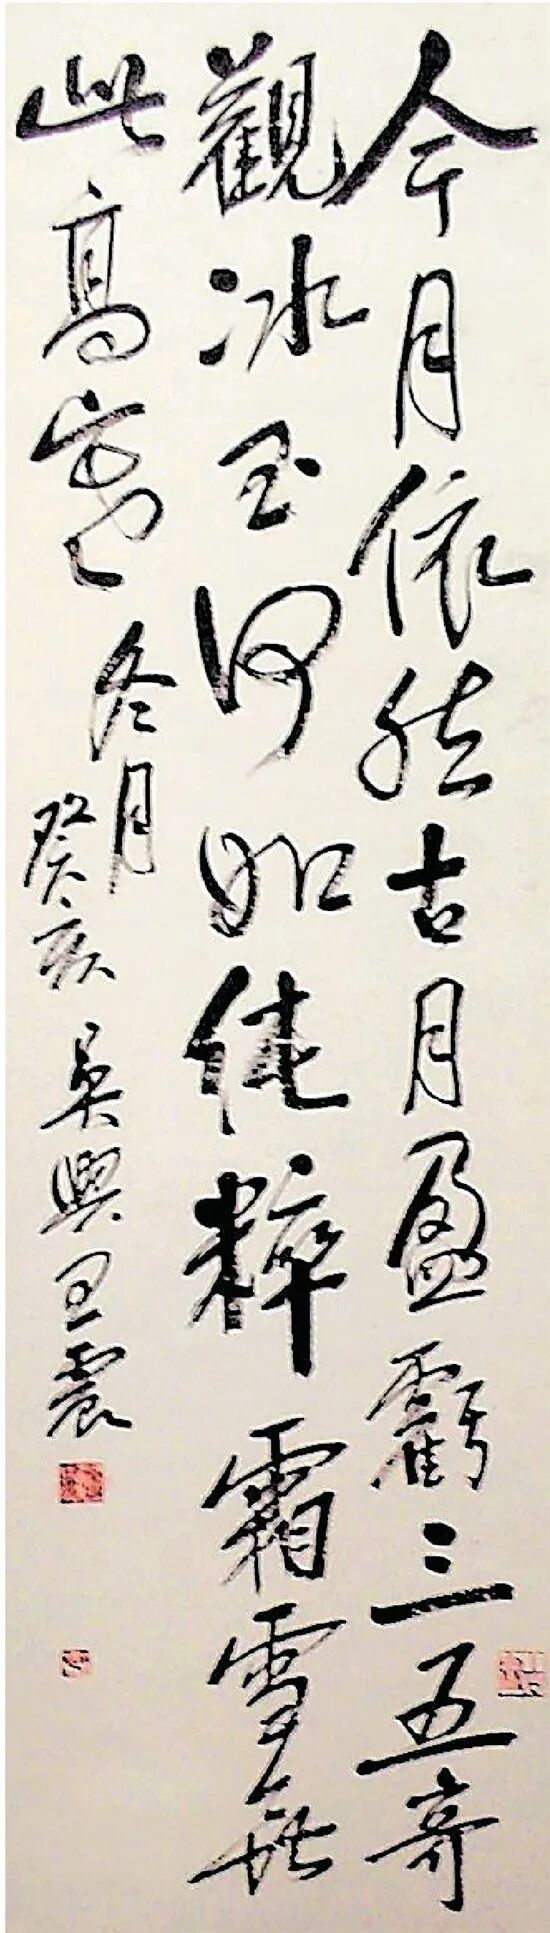 今月依然古月盈虧三五奇
觀冰玉何如純粹霜雪無
此高寒冬月
癸亥吳興王震